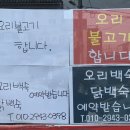 오리불고기
합니다.
오리백숙
예약받습니다
닭백숙
오리
불고기
합니다
오리백숙
닭백숙
예약받습니다
T.010-2943-0